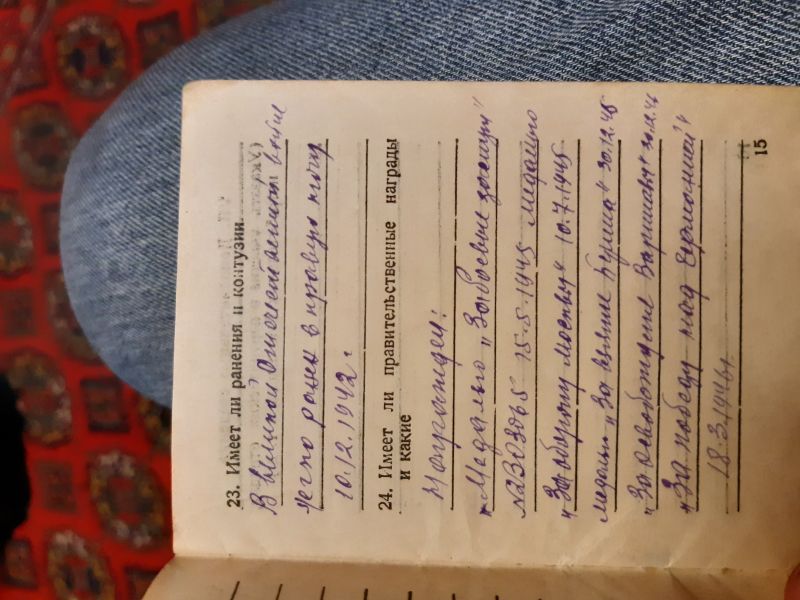 23. Имеет ли ранения и контузии.
В великой Отечественной войне
легко ранен в правую ногу
10.12.1942 г
24. Имеет ли правительственные награды
и какие
Награжден:
"Медалью "За боевые заслуги"
15.5.1945 медалью
"За оборону Москвы" 10.7.1945
медалью "За взятие Берлина" 30.12.45
"За освобождение Варшавы"
"За победу над Германией"
18.3.1946г.
15